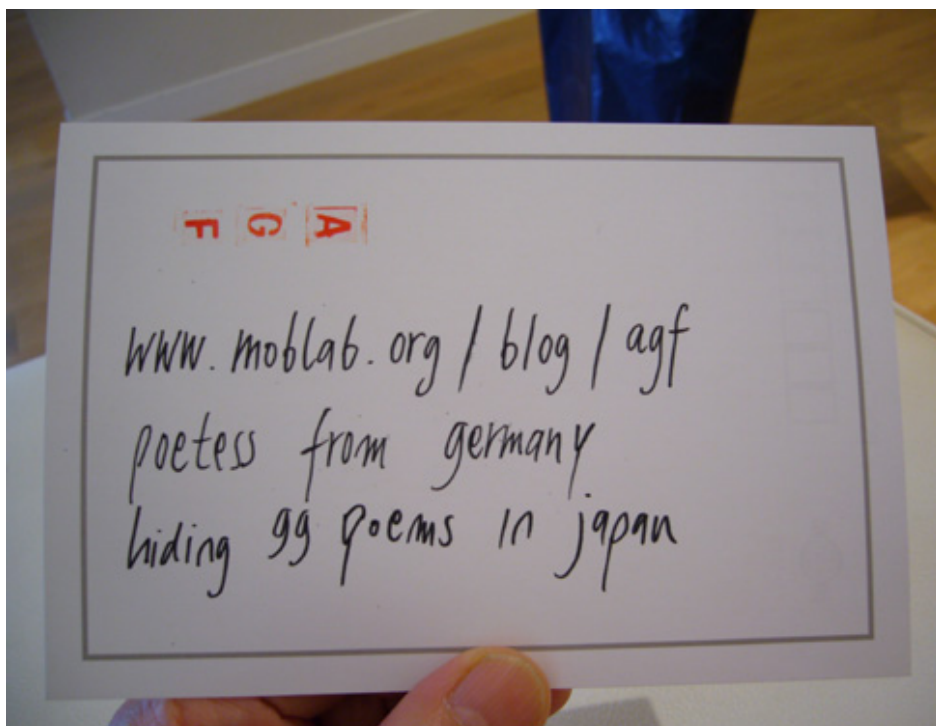 A G F
www.moblab.org/blog/agf
poetess from germany
hiding 99 poems in japan